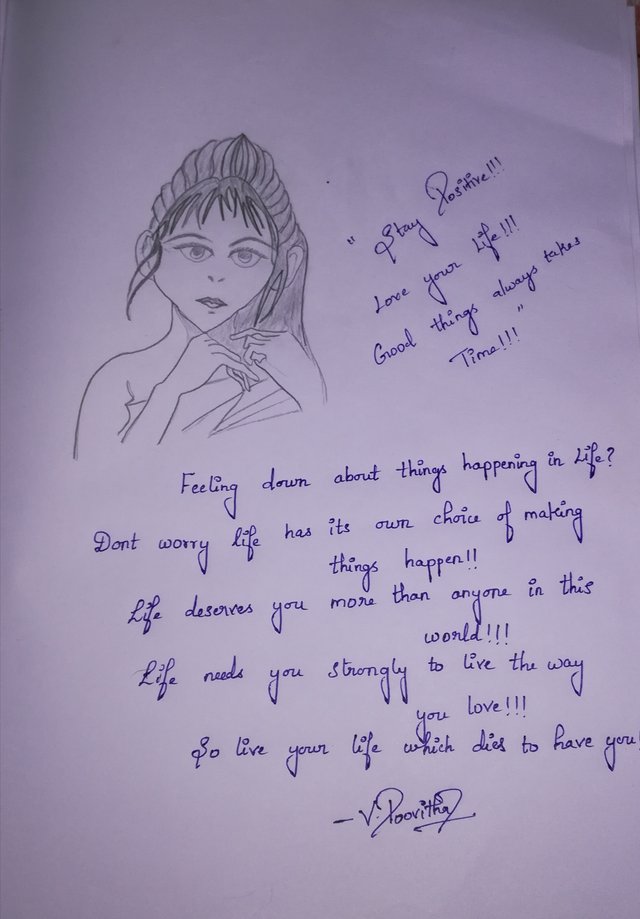 " Stay Positive!!!
Love your Life!!!
Good things always takes
Time!!! "
Feeling down about things happening in Life?
Dont worry life has its own choice of making
things happen!!
Life deserves you more than anyone in this
world!!!
Life needs you strongly to live the way
you love!!!
So live your life which dies to have you!
- V. Poovitha